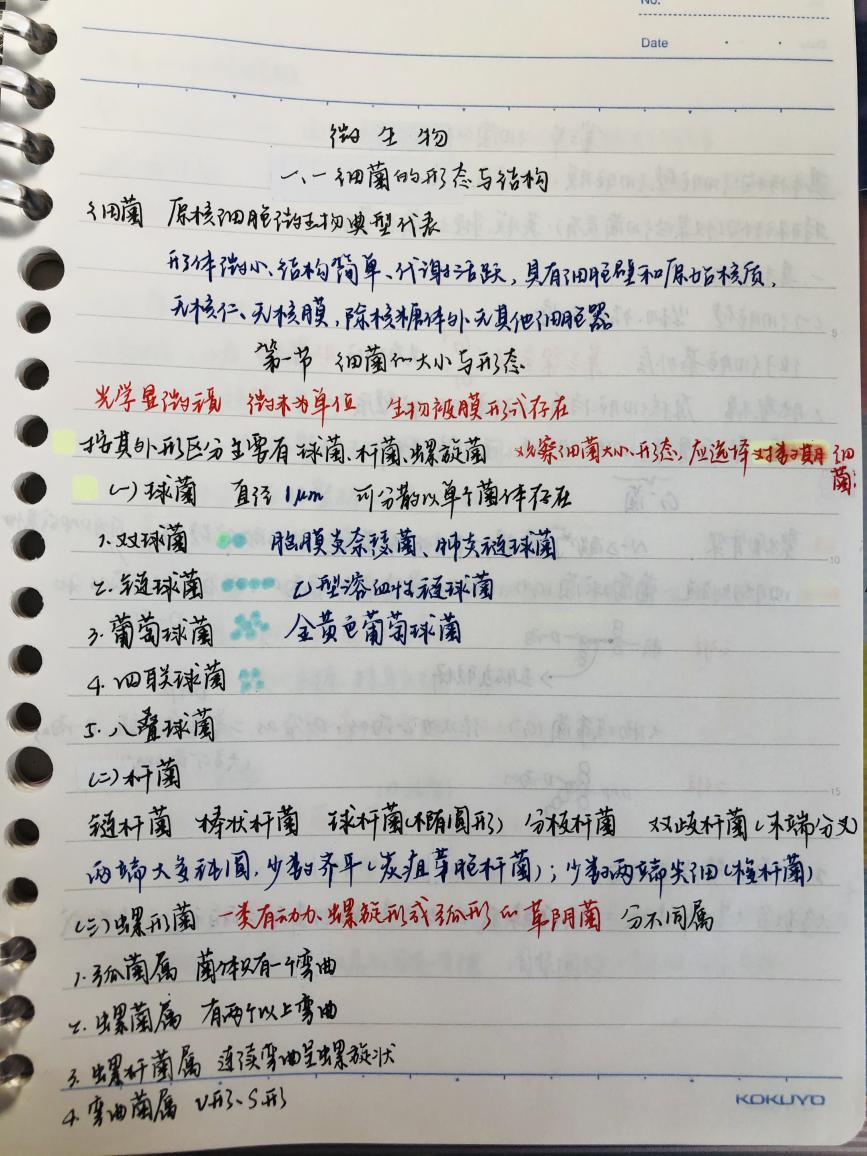 No.
Date
微生物
一、一细菌的形态与结构
细菌 原核细胞微生物典型代表
形体微小、结构简单、代谢活跃，具有细胞壁和原始核质，
无核仁、无核膜，除核糖体外无其他细胞器
第一节 细菌的大小与形态
光学显微镜 微米为单位 生物被膜形式存在
按其外形区分主要有球菌、杆菌、螺旋菌 观察细菌大小、形态，应选择对数期细菌;
(一)球菌 直径1μm 可分散以单个菌体存在
1.双球菌 脑膜炎奈瑟菌、肺炎链球菌
2.链球菌 乙型溶血性链球菌
3.葡萄球菌 金黄色葡萄球菌
4.四联球菌
5.八叠球菌
(二)杆菌
链杆菌 棒状杆菌 球杆菌(椭圆形) 分枝杆菌 双歧杆菌(末端分叉
两端大多钝圆，少数齐平(炭疽芽胞杆菌)；少数两端尖细(梭杆菌)
(三)螺形菌 一类有动力、螺旋形或弧形的革阴菌 分不同属
1.弧菌属 菌体只有一个弯曲
2.螺菌属 有两个以上弯曲
3.螺杆菌属 连续弯曲呈螺旋状
4.弯曲菌属 U形、S形
KOKUYO